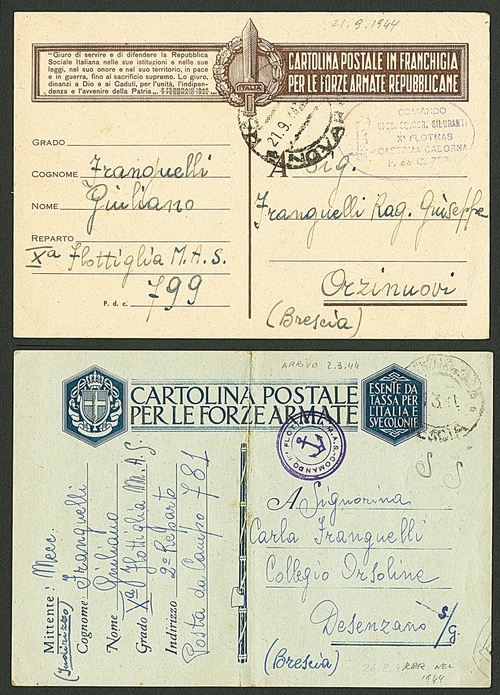 21.9.1944
"Giuro di servire e di difendere la Repubblica
Sociale Italiana nelle sue istituzioni e nelle sue
leggi, nel suo onore e nel suo territorio, in pace
e in guerra, fino al sacrificio supremo. Lo giuro,
dinanzi a Dio e ai Caduti, per l'unità, l'indipen-
denza e l'avvenire della Patria...
ITALIA
CARTOLINA POSTALE IN FRANCHIGIA
PER LE FORZE ARMATE REPUBBLICANE
21.9.
COMANDO
SILURANTI
Xª FLOTMAS
CASERMA CADORNA
GRADO
COGNOME Franquelli
NOME Giuliano
REPARTO
Xª Flottiglia M.A.S.
P. d. c. 799
A Sig.
Franquelli Rag. Giuseppe
Orzinuovi
(Brescia)
ARRIVO 2.3.44
CARTOLINA POSTALE
PER LE FORZE ARMATE
ESENTE DA
TASSA PER
L'ITALIA E
SUE COLONIE
FLOTTIGLIA M.A.S. - COMANDO
Mittente: Mecc.
(Indirizzo)
Cognome Franquelli
Nome Giuliano
Grado Xª Flottiglia M.A.S.
Indirizzo 2º Reparto
Posta da Campo 781
A Signorina
Carla Franquelli
Collegio Orsoline
Desenzano s/g.
(Brescia)
ARR. NEL
1944